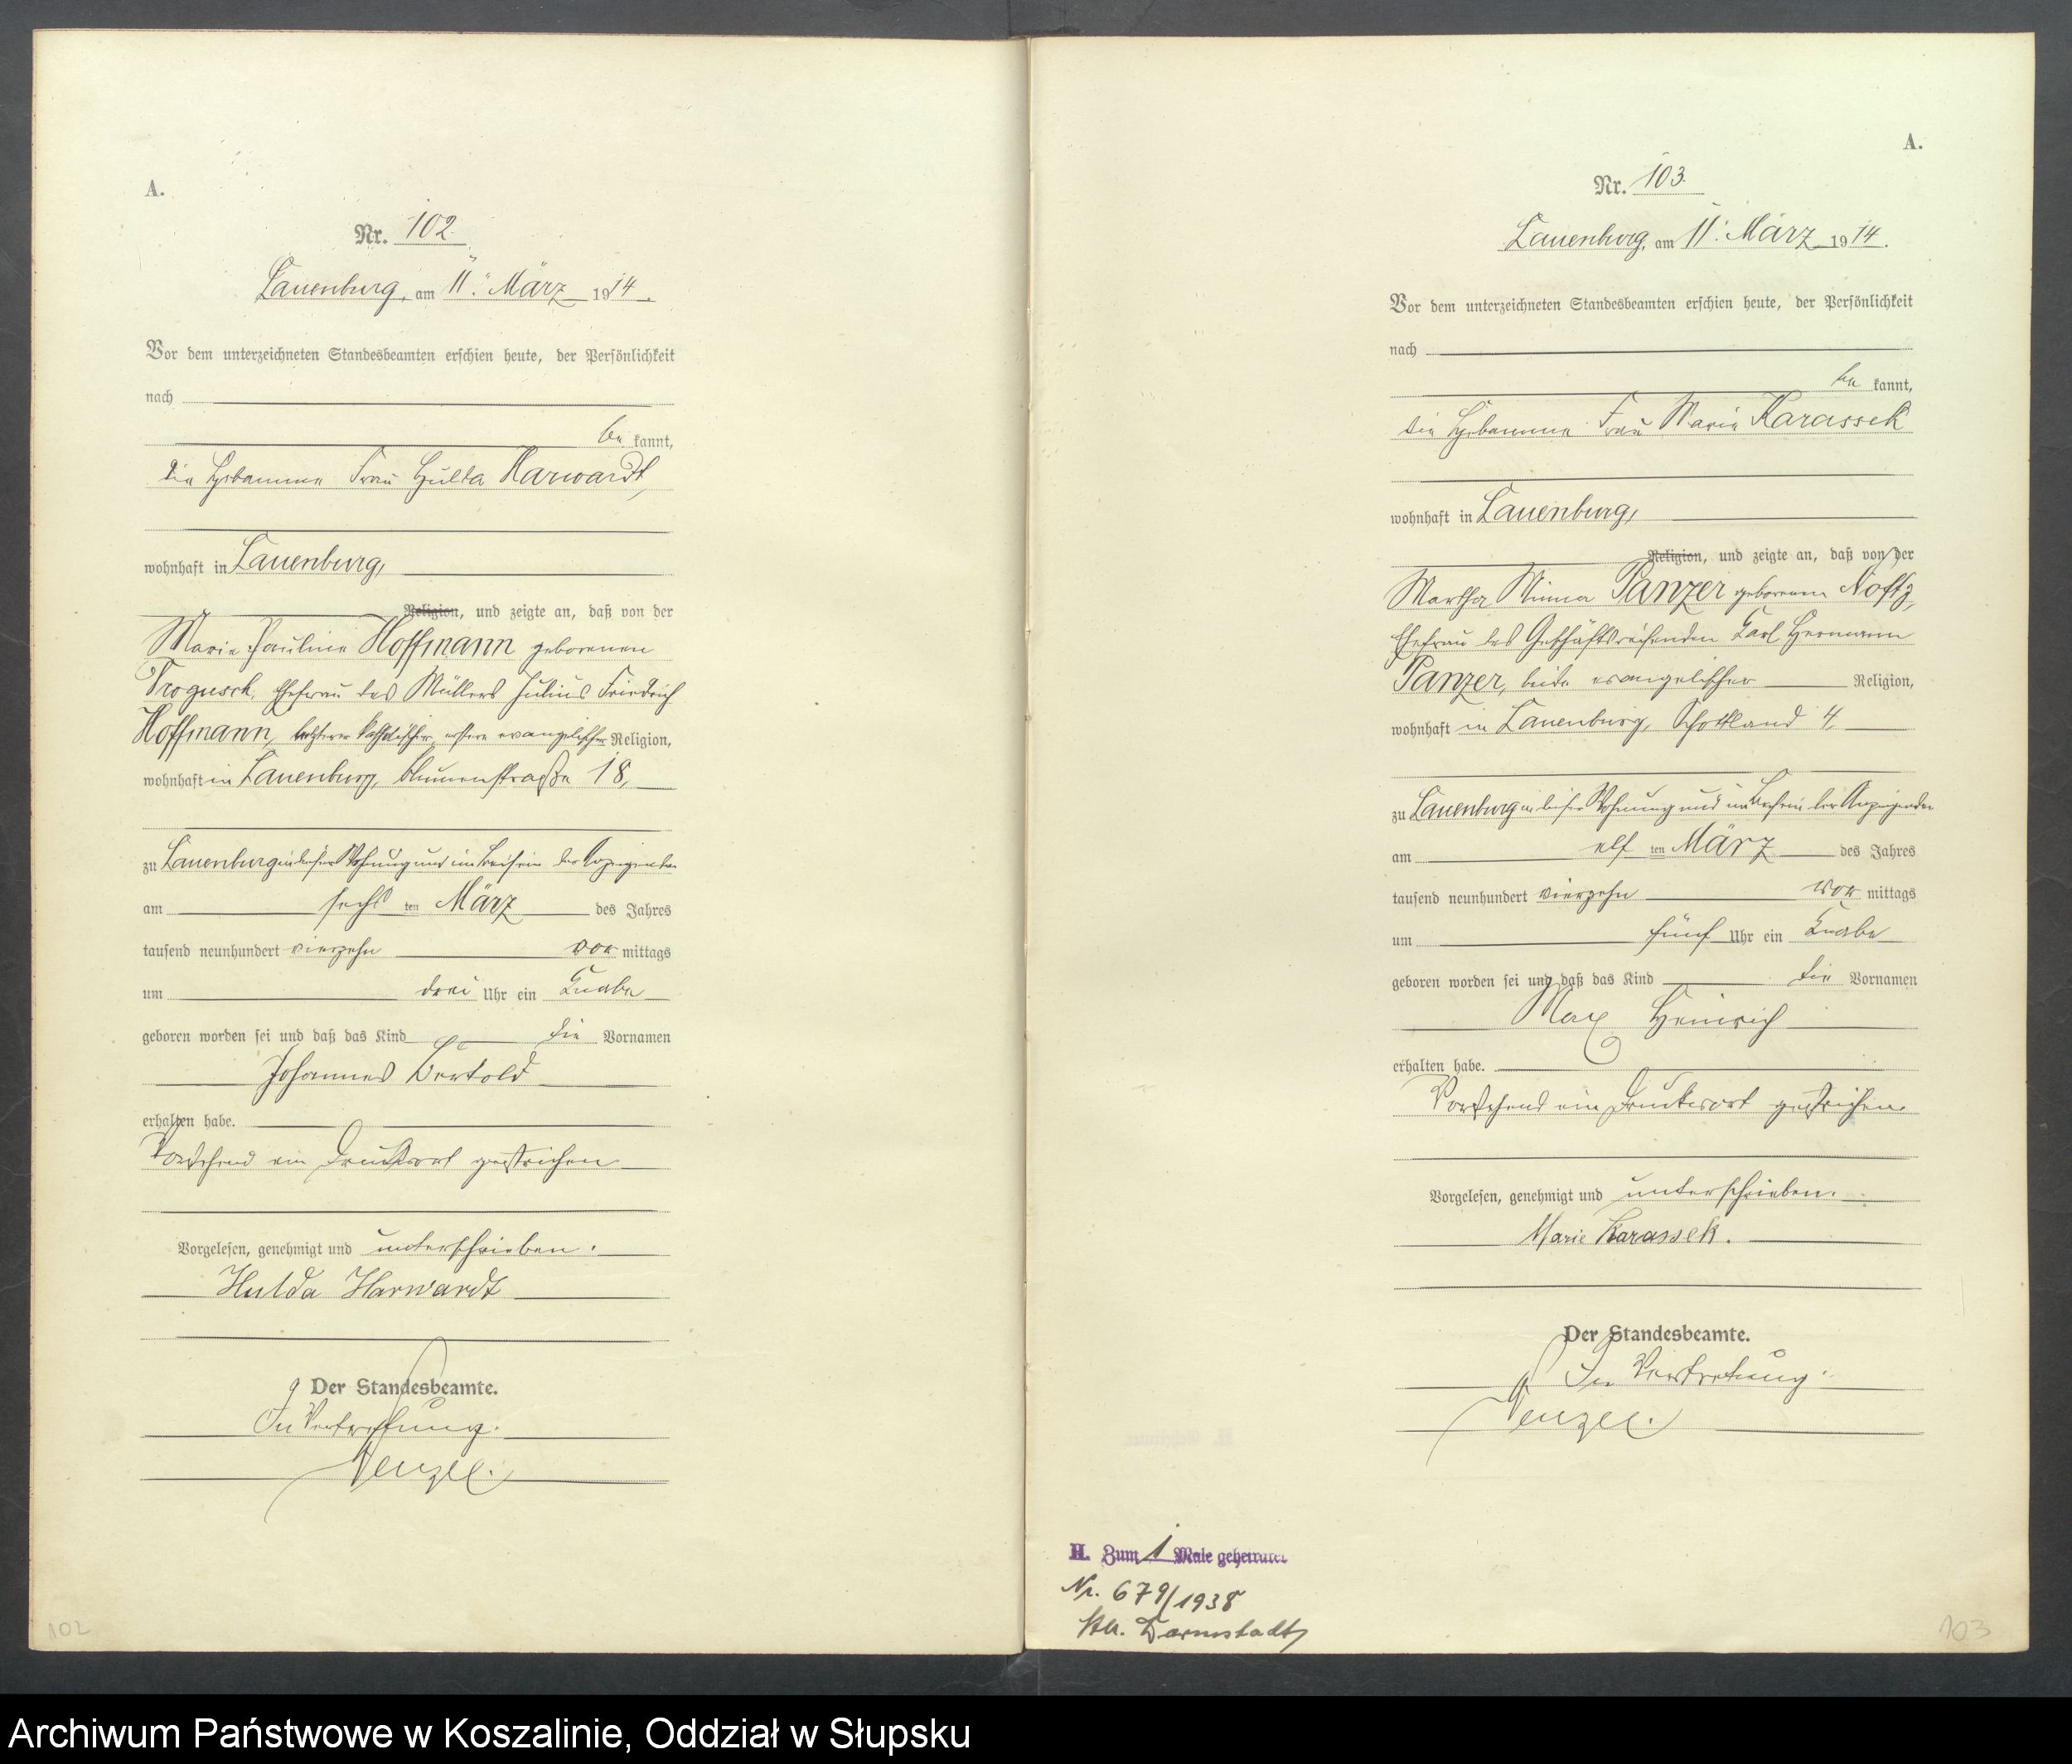 A.
Nr. 102.
Lauenburg, am 11. März 1914.
Vor dem unterzeichneten Standesbeamten erschien heute, der Persönlichkeit
nach
be kannt,
die Hebamme Frau Hulda Harwardt,
wohnhaft in Lauenburg,
Religion, und zeigte an, daß von der
Marie Pauline Hoffmann geborenen
Trogusch, Ehefrau des Müllers Julius Friedrich
Hoffmann, letzterer katholischer, erstere evangelischer Religion,
wohnhaft in Lauenburg, Blumenstraße 18,
zu Lauenburg in dieser Wohnung und im Beisein der Anzeigenden
am sechs ten März des Jahres
tausend neunhundert vierzehn vor mittags
um drei Uhr ein Knabe
geboren worden sei und daß das Kind die Vornamen
Johannes Bertold
erhalten habe.
Vorstehend ein Druckwort gestrichen
Vorgelesen, genehmigt und unterschrieben.
Hulda Harwardt
Der Standesbeamte.
In Vertretung.
102
A.
Nr. 103.
Lauenburg, am 11. März 1914.
Vor dem unterzeichneten Standesbeamten erschien heute, der Persönlichkeit
nach
be kannt,
die Hebamme Frau Marie Karassek
wohnhaft in Lauenburg,
Religion, und zeigte an, daß von der
Martha Minna Panzer geborenen Noffz,
Ehefrau des Geschäftsreisenden Karl Hermann
Panzer, beide evangelischer Religion,
wohnhaft in Lauenburg, Schottland 4,
zu Lauenburg in dieser Wohnung und im Beisein der Anzeigenden
am elf ten März des Jahres
tausend neunhundert vierzehn vor mittags
um fünf Uhr ein Knabe
geboren worden sei und daß das Kind die Vornamen
Max Heinrich
erhalten habe.
Vorstehend ein Druckwort gestrichen.
Vorgelesen, genehmigt und unterschrieben.
Marie Karassek.
Der Standesbeamte.
In Vertretung:
H. Zum 1 Male geheiratet
Nr. 679/1938
Darmstadt
103
Archiwum Państwowe w Koszalinie, Oddział w Słupsku